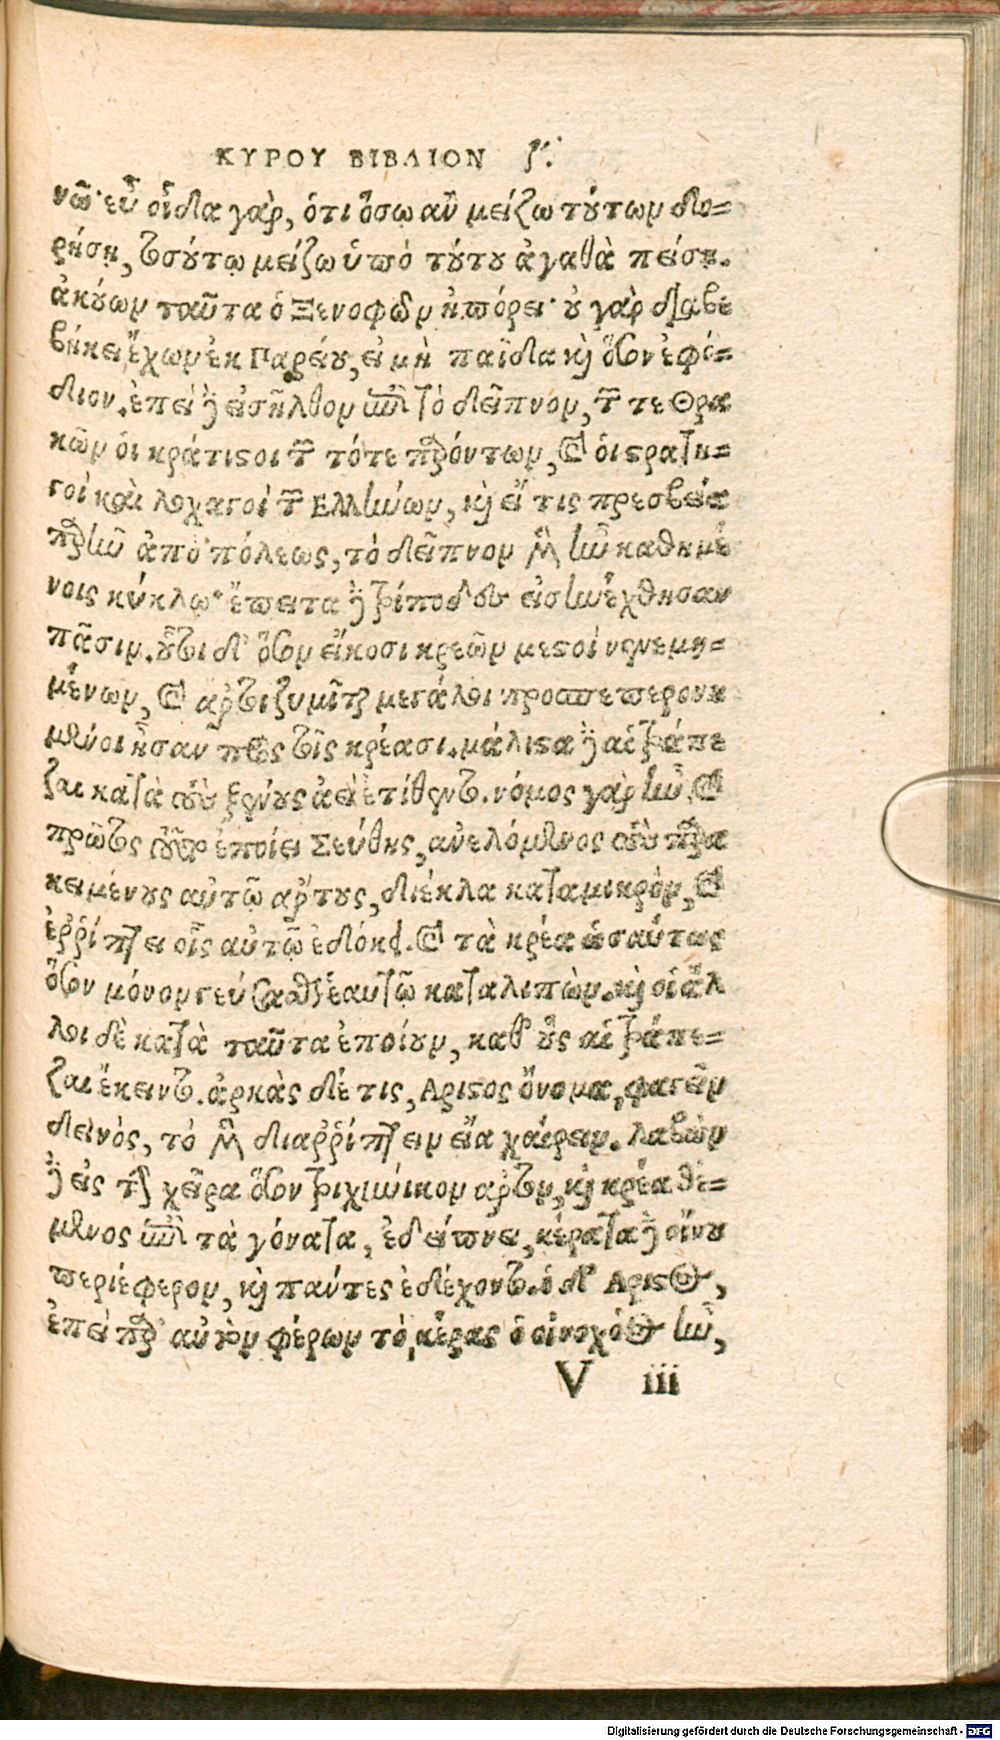 ΚΥΡΟΥ ΒΙΒΛΙΟΝ ζʹ.
νῶ· εὖ οἶδα γὰρ, ὅτι ὅσῳ ἂν μείζω τούτων δω-
ρήσῃ, τοσούτῳ μείζω ὑπὸ τούτου ἀγαθὰ πείσῃ.
ἀκούων ταῦτα ὁ Ξενοφῶν ἠπόρει· οὐ γὰρ διαβε
βήκει ἔχων ἐκ Παρίου, εἰ μὴ παῖδα καὶ ὅσον ἐφό-
διον. ἐπεὶ δὲ εἰσῆλθον ἐπὶ τὸ δεῖπνον, τῶν τε Θρᾳ
κῶν οἱ κράτιστοι τῶν τότε παρόντων, καὶ οἱ στρατη-
γοὶ καὶ λοχαγοὶ τῶν Ελλήνων, καὶ εἴ τις πρεσβεία
παρῆν ἀπὸ πόλεως, τὸ δεῖπνον μὲν ἦν καθημέ
νοις κύκλῳ· ἔπειτα δὲ τρίποδες εἰσηνέχθησαν
πᾶσιν. οὗτοι δ' ὅσον εἴκοσι κρεῶν μεστοὶ νενεμη-
μένων, καὶ ἄρτοι ζυμῖται μεγάλοι προσπεπερονη
μένοι ἦσαν πρὸς τοῖς κρέασι. μάλιστα δὲ αἱ τράπε
ζαι κατὰ τοὺς ξένους ἀεὶ ἐτίθεντο. νόμος γὰρ ἦν. καὶ
πρῶτος τοῦτο ἐποίει Σεύθης, ἀνελόμενος τοὺς παρα
κειμένους αὐτῷ ἄρτους, διέκλα κατὰ μικρὸν, καὶ
ἐῤῥίπτει οἷς αὐτῷ ἐδόκει. καὶ τὰ κρέα ὡσαύτως
ὅσον μόνον γεύσασθαι ἑαυτῷ καταλιπών. καὶ οἱ ἄλ
λοι δὲ κατὰ ταῦτα ἐποίουν, καθ' οὓς αἱ τράπε-
ζαι ἔκειντο. ἀρκὰς δέ τις, Αριστος ὄνομα, φαγεῖν
δεινὸς, τὸ μὲν διαῤῥίπτειν εἴα χαίρειν. λαβὼν
δὲ εἰς τὴν χεῖρα ὅσον τριχοίνικον ἄρτον, καὶ κρέα θέ-
μενος ἐπὶ τὰ γόνατα, ἐδείπνει, κέρατα δὲ οἴνου
περιέφερον, καὶ πάντες ἐδέχοντο. ὁ δ' Αριστος,
ἐπεὶ παρ' αὐτὸν φέρων τὸ κέρας ὁ οἰνοχόος ἦν,
V iii
Digitalisierung gefördert durch die Deutsche Forschungsgemeinschaft - DFG